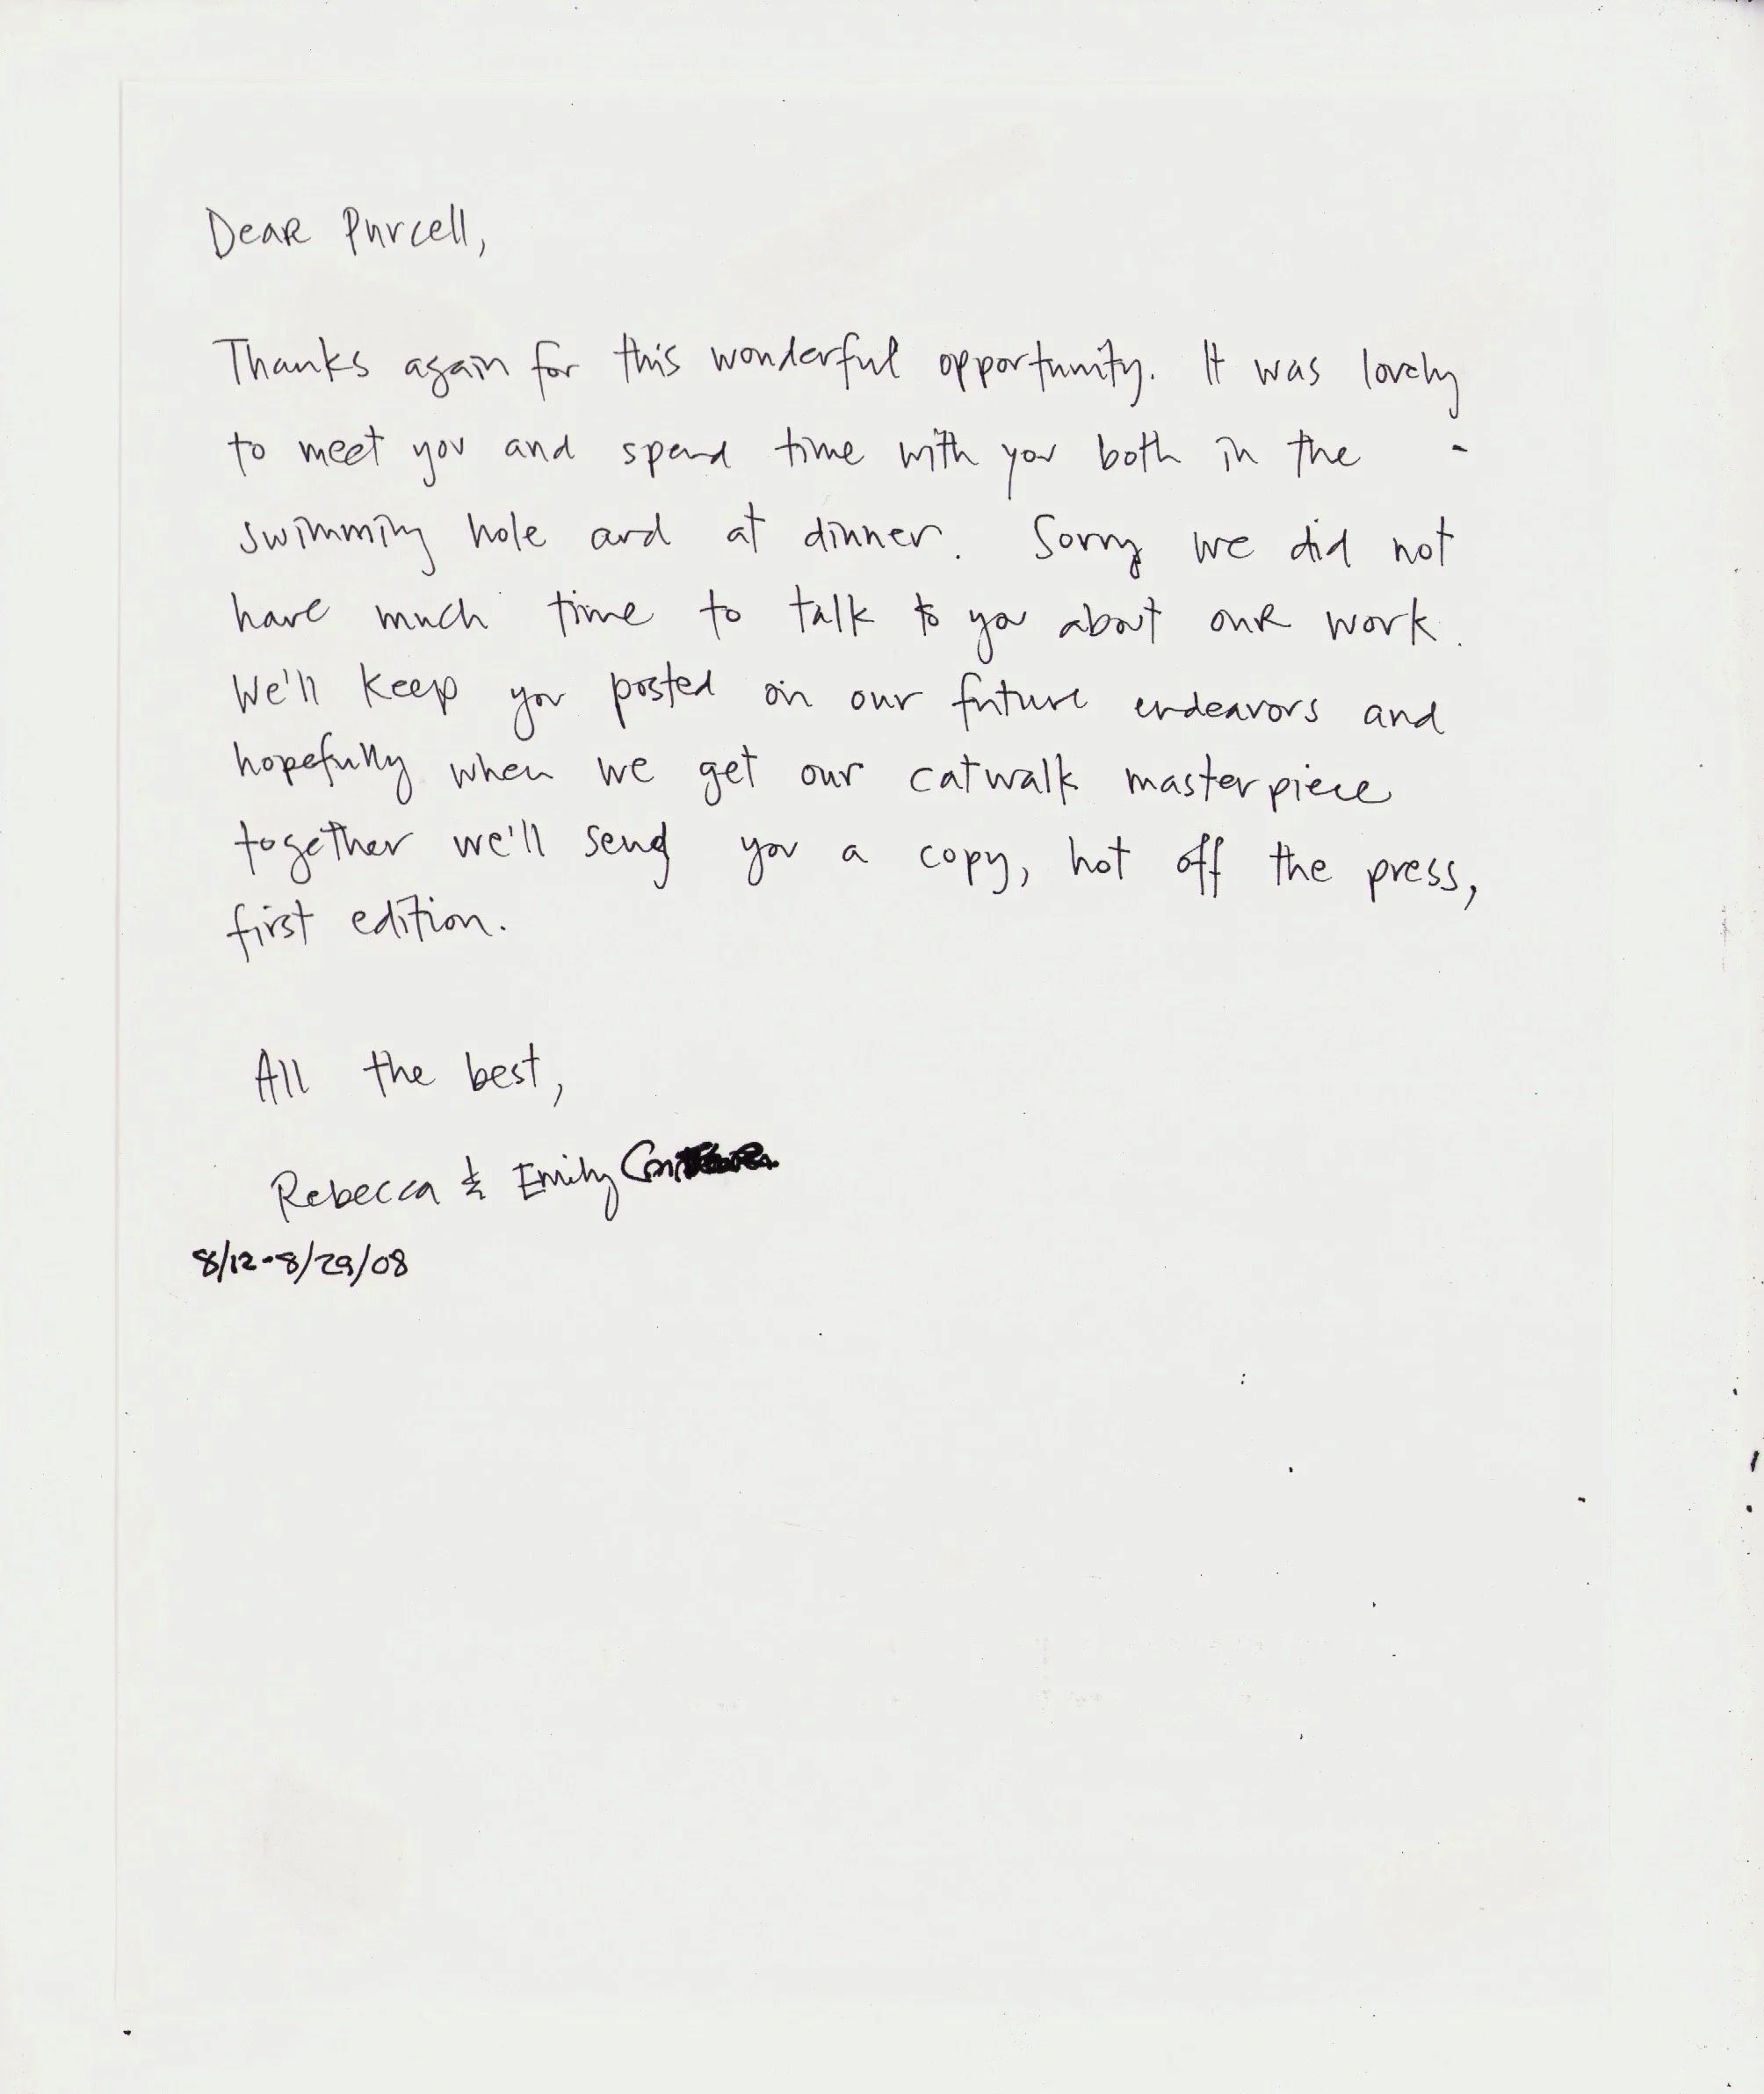 Dear Purcell,
Thanks again for this wonderful opportunity. It was lovely
to meet you and spend time with you both in the
swimming hole and at dinner. Sorry we did not
have much time to talk to you about our work.
We'll keep you posted on our future endeavors and
hopefully when we get our catwalk masterpiece
together we'll send you a copy, hot off the press,
first edition.
All the best,
Rebecca & Emily
8/12-8/29/08